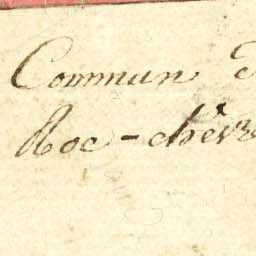 Commun
Roc-chèvre